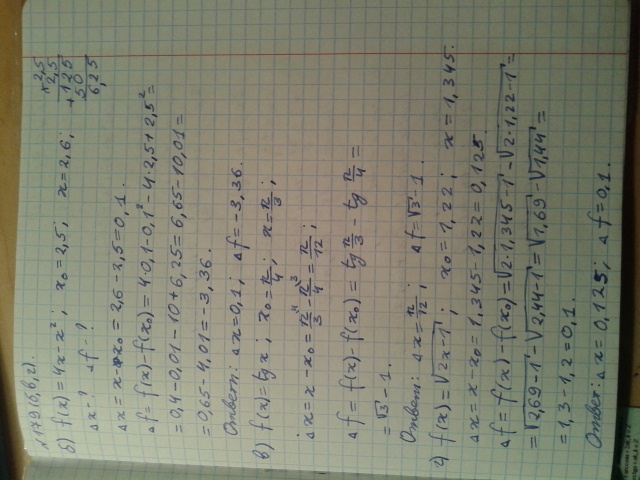 №179(б,в,г).
б) f(x)=4x-x²; x₀=2,5; x=2,6;
×2,5
2,5
+125
50
6,25
Δx-? Δf-?
Δx=x-x₀=2,6-2,5=0,1.
Δf=f(x)-f(x₀)=4·0,1-0,1²-4·2,5+2,5²=
=0,4-0,01-10+6,25=6,65-10,01=
=0,65-4,01=-3,36.
Ответ: Δx=0,1; Δf=-3,36.
в) f(x)=tgx; x₀=π/4; x=π/3;
Δx=x-x₀=π/3⁴-π/4³=π/12;
Δf=f(x)-f(x₀)=tg π/3-tg π/4=
=√3-1.
Ответ: Δx=π/12; Δf=√3-1.
г) f(x)=√(2x-1); x₀=1,22; x=1,345.
Δx=x-x₀=1,345-1,22=0,125
Δf=f(x)-f(x₀)=√(2·1,345-1)-√(2·1,22-1)=
=√(2,69-1)-√(2,44-1)=√(1,69)-√(1,44)=
=1,3-1,2=0,1.
Ответ: Δx=0,125; Δf=0,1.